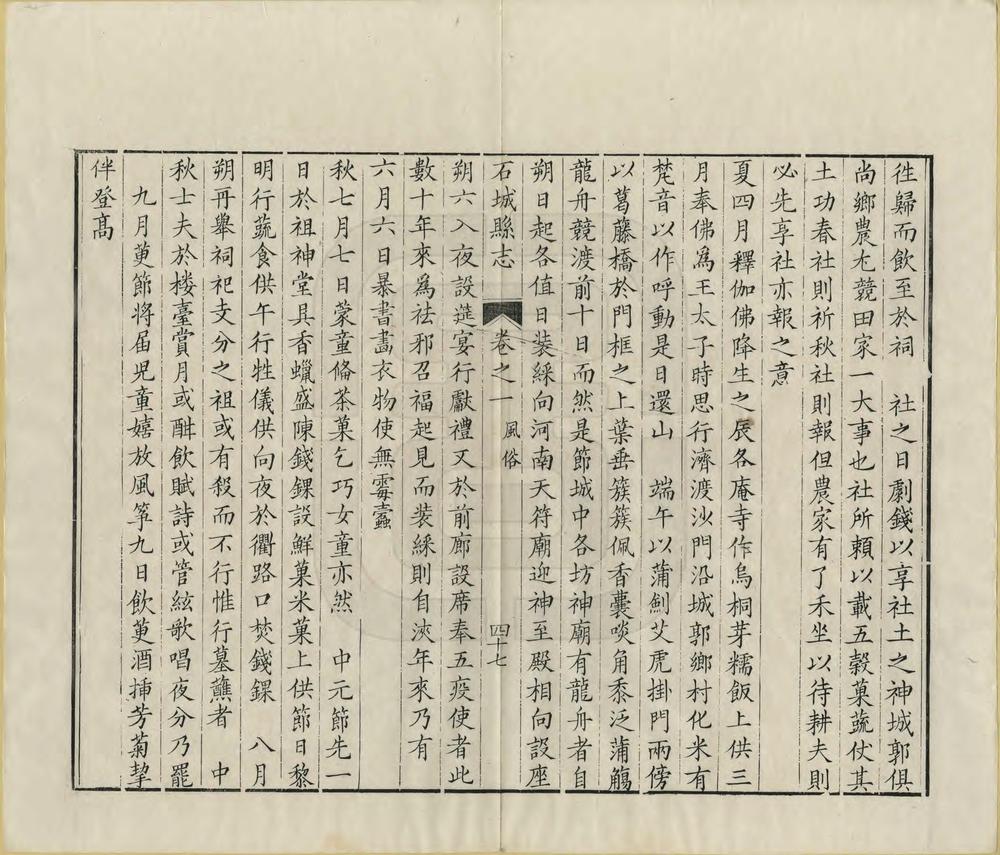 徃歸而飲至於祠　社之日劇錢以享社土之神城郭俱
尚鄉農尤競田家一大事也社所賴以載五穀菓蔬仗其
土功春社則祈秋社則報但農家有了禾坐以待耕夫則
必先享社亦報之意
夏四月釋伽佛降生之辰各庵寺作烏桐芽糯飯上供三
月奉佛為王太子時思行濟渡沙門沿城郭鄉村化米有
梵音以作呼動是日還山　端午以蒲劍艾虎掛門兩傍
以葛藤橋於門框之上葉垂簇簇佩香囊啖角黍泛蒲觴
龍舟競渡前十日而然是節城中各坊神廟有龍舟者自
朔日起各值日裝綵向河南天符廟迎神至殿相向設座
石城縣志　卷之一　風俗　四十七
朔六入夜設筵宴行獻禮又於前廊設席奉五疫使者此
數十年來爲祛邪召福起見而裝綵則自浹年來乃有
六月六日暴書畵衣物使無霉蠹
秋七月七日蒙童俻茶菓乞巧女童亦然　中元節先一
日於祖神堂具香蠟盛陳錢錁設鮮菓米菓上供節日黎
明行蔬食供午行牲儀供向夜於衢路口焚錢錁　八月
朔再舉祠祀支分之祖或有殺而不行惟行墓蘸者　中
秋士夫於楼臺賞月或酣飲賦詩或管絃歌唱夜分乃罷
九月萸節將届児童嬉放風筝九日飲萸酒揷芳菊挈
伴登高